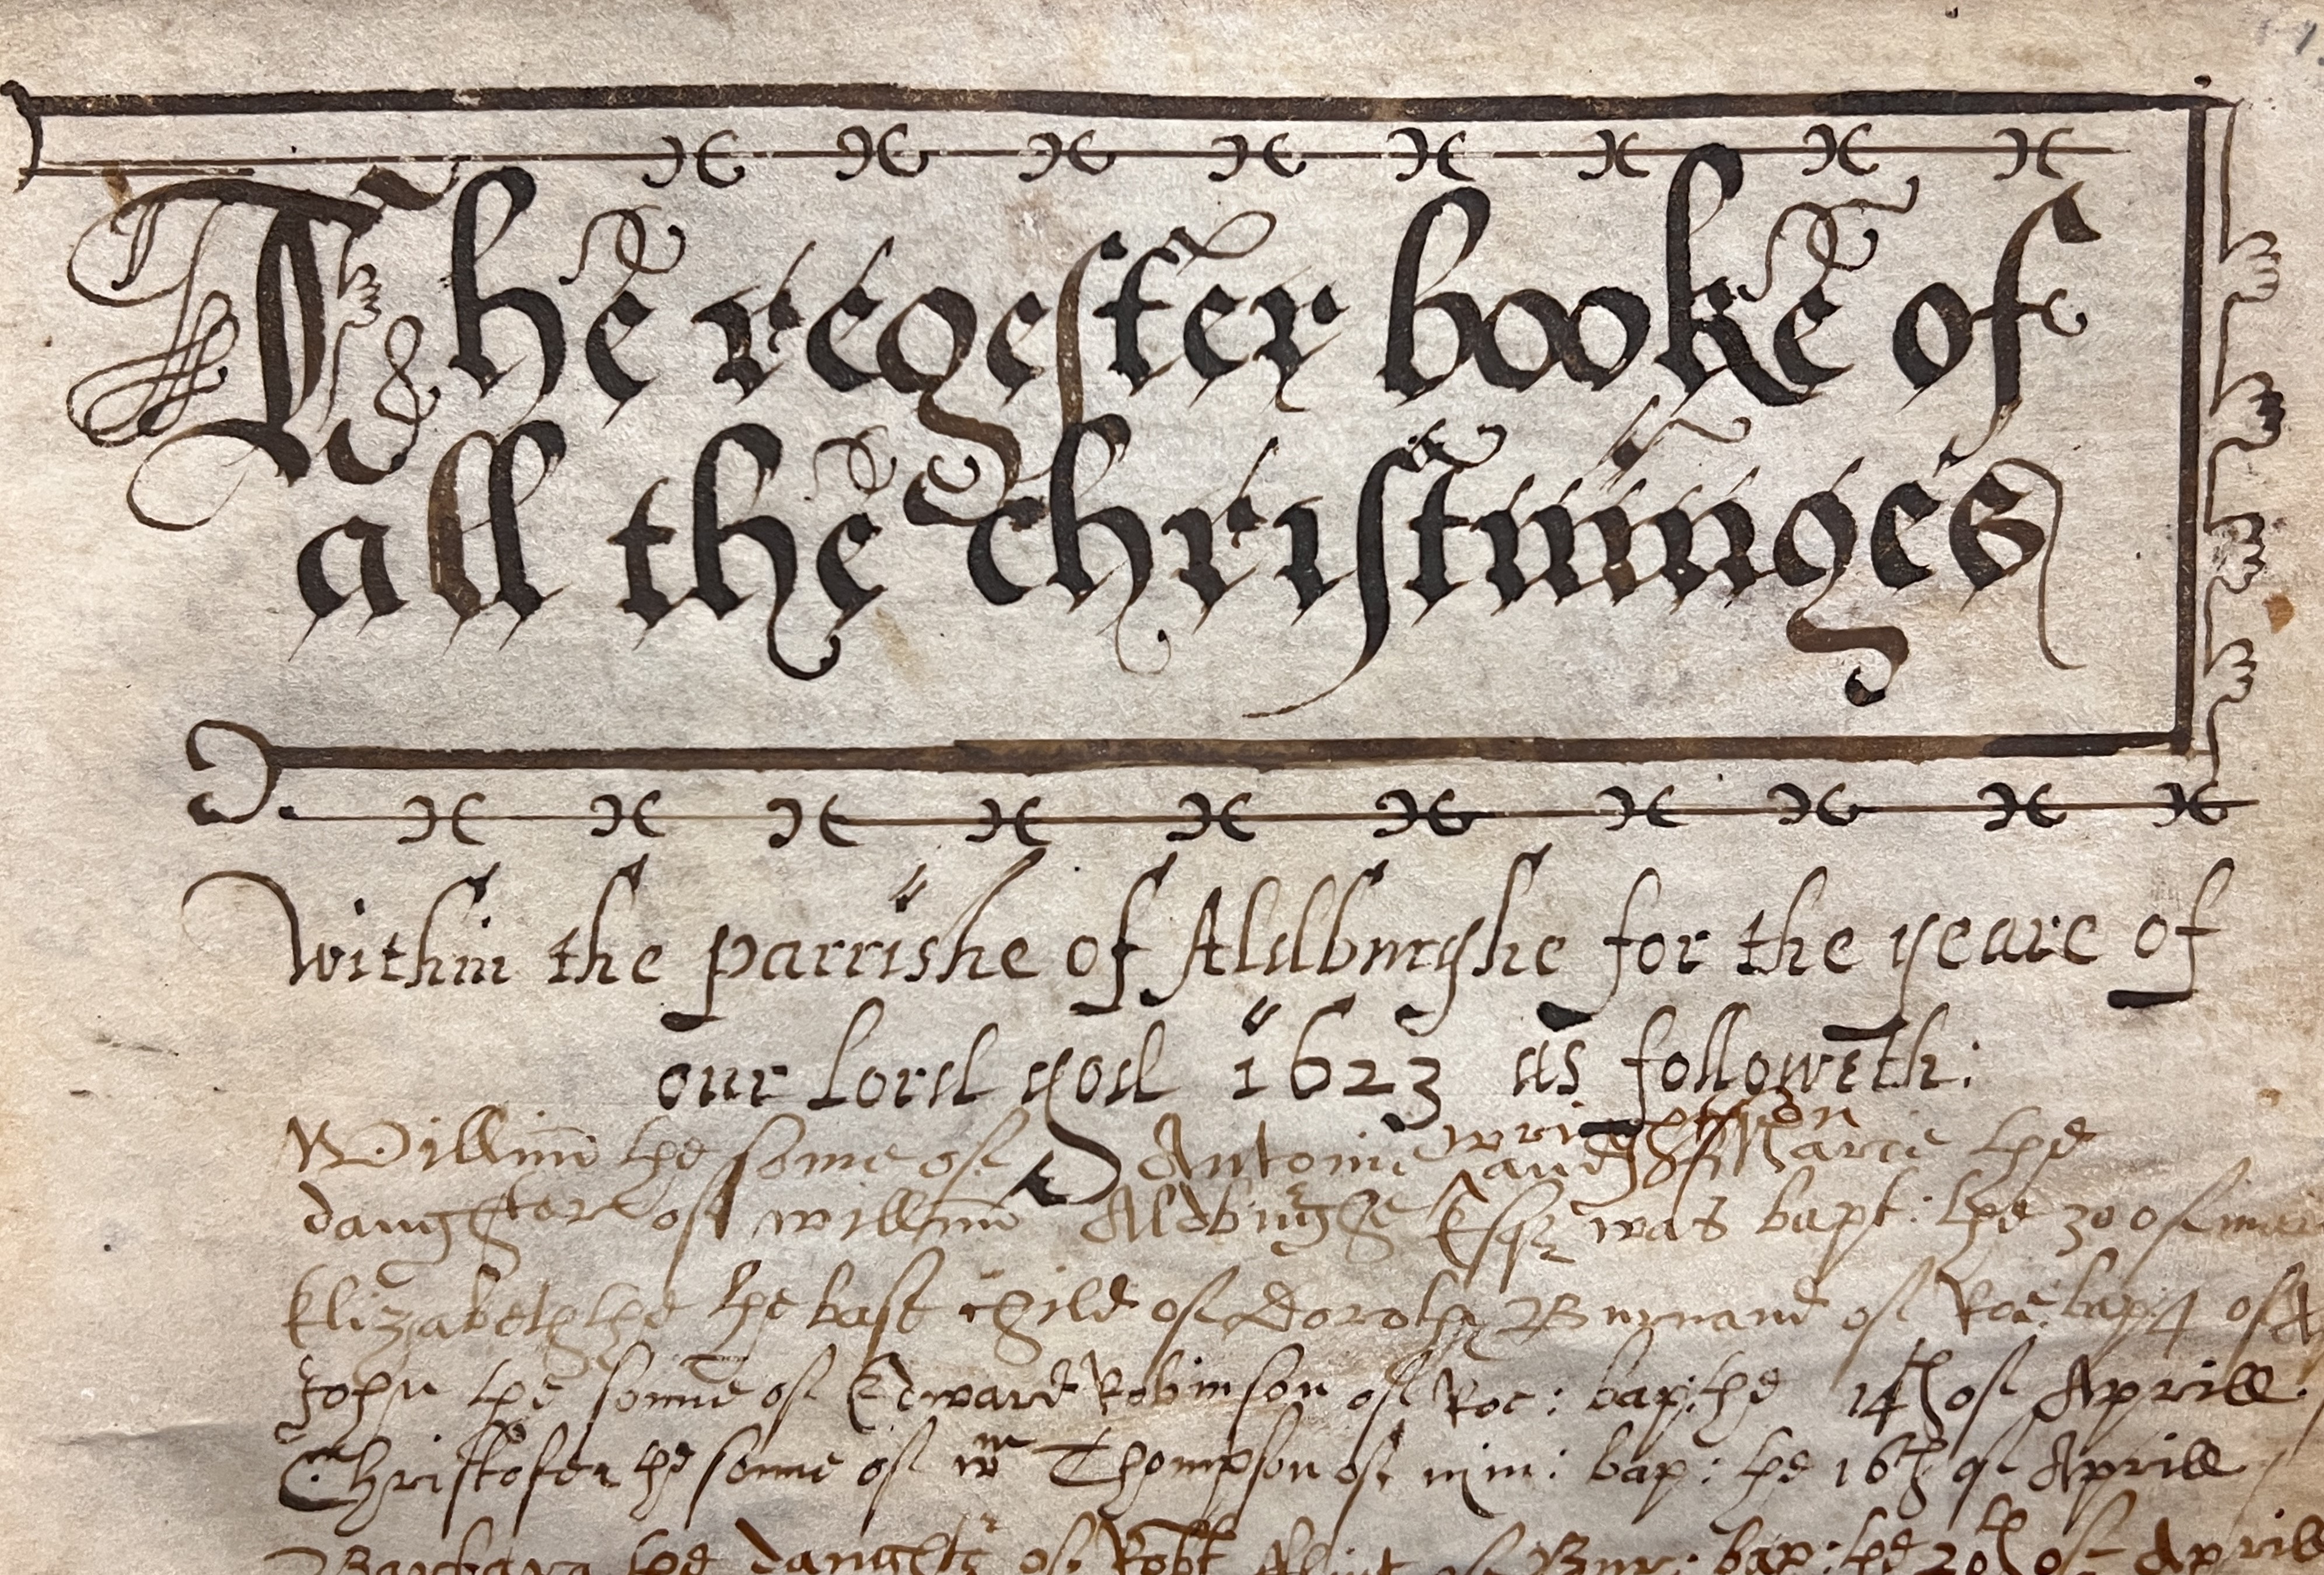 The regester booke of
all the christninges
within the parrishe of Aldburghe for the yeare of
our Lord god 1623 as followeth:
wrightson
Willim the sonne of Antonie and Marie the
daughter of willim Aldbrughe Esqr was bapt: the 30 of
Elizabeth the the bast child of Dorothy Burnand of Roc: bap: 4 of A
John the sonne of Edward Robinson of Roc: bap: the 14th of Aprill.
Christofer the sonne of wm Thompson of min: bap: the 16th of Aprill
Barbara the daughtr of Robt of Bur: bap: the 20th of Aprill